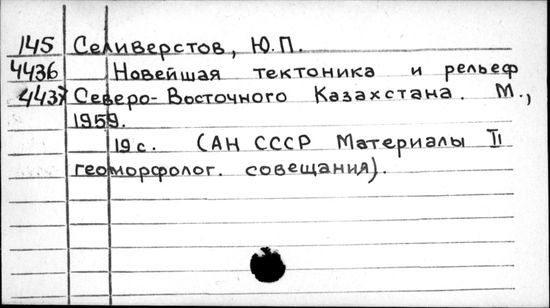 145 Селиверстов, Ю.П.
4436 Новейшая тектоника и рельеф
4437 Северо-Восточного Казахстана. М.,
1959.
19 с. (АН СССР Материалы II
геоморфолог. совещания).